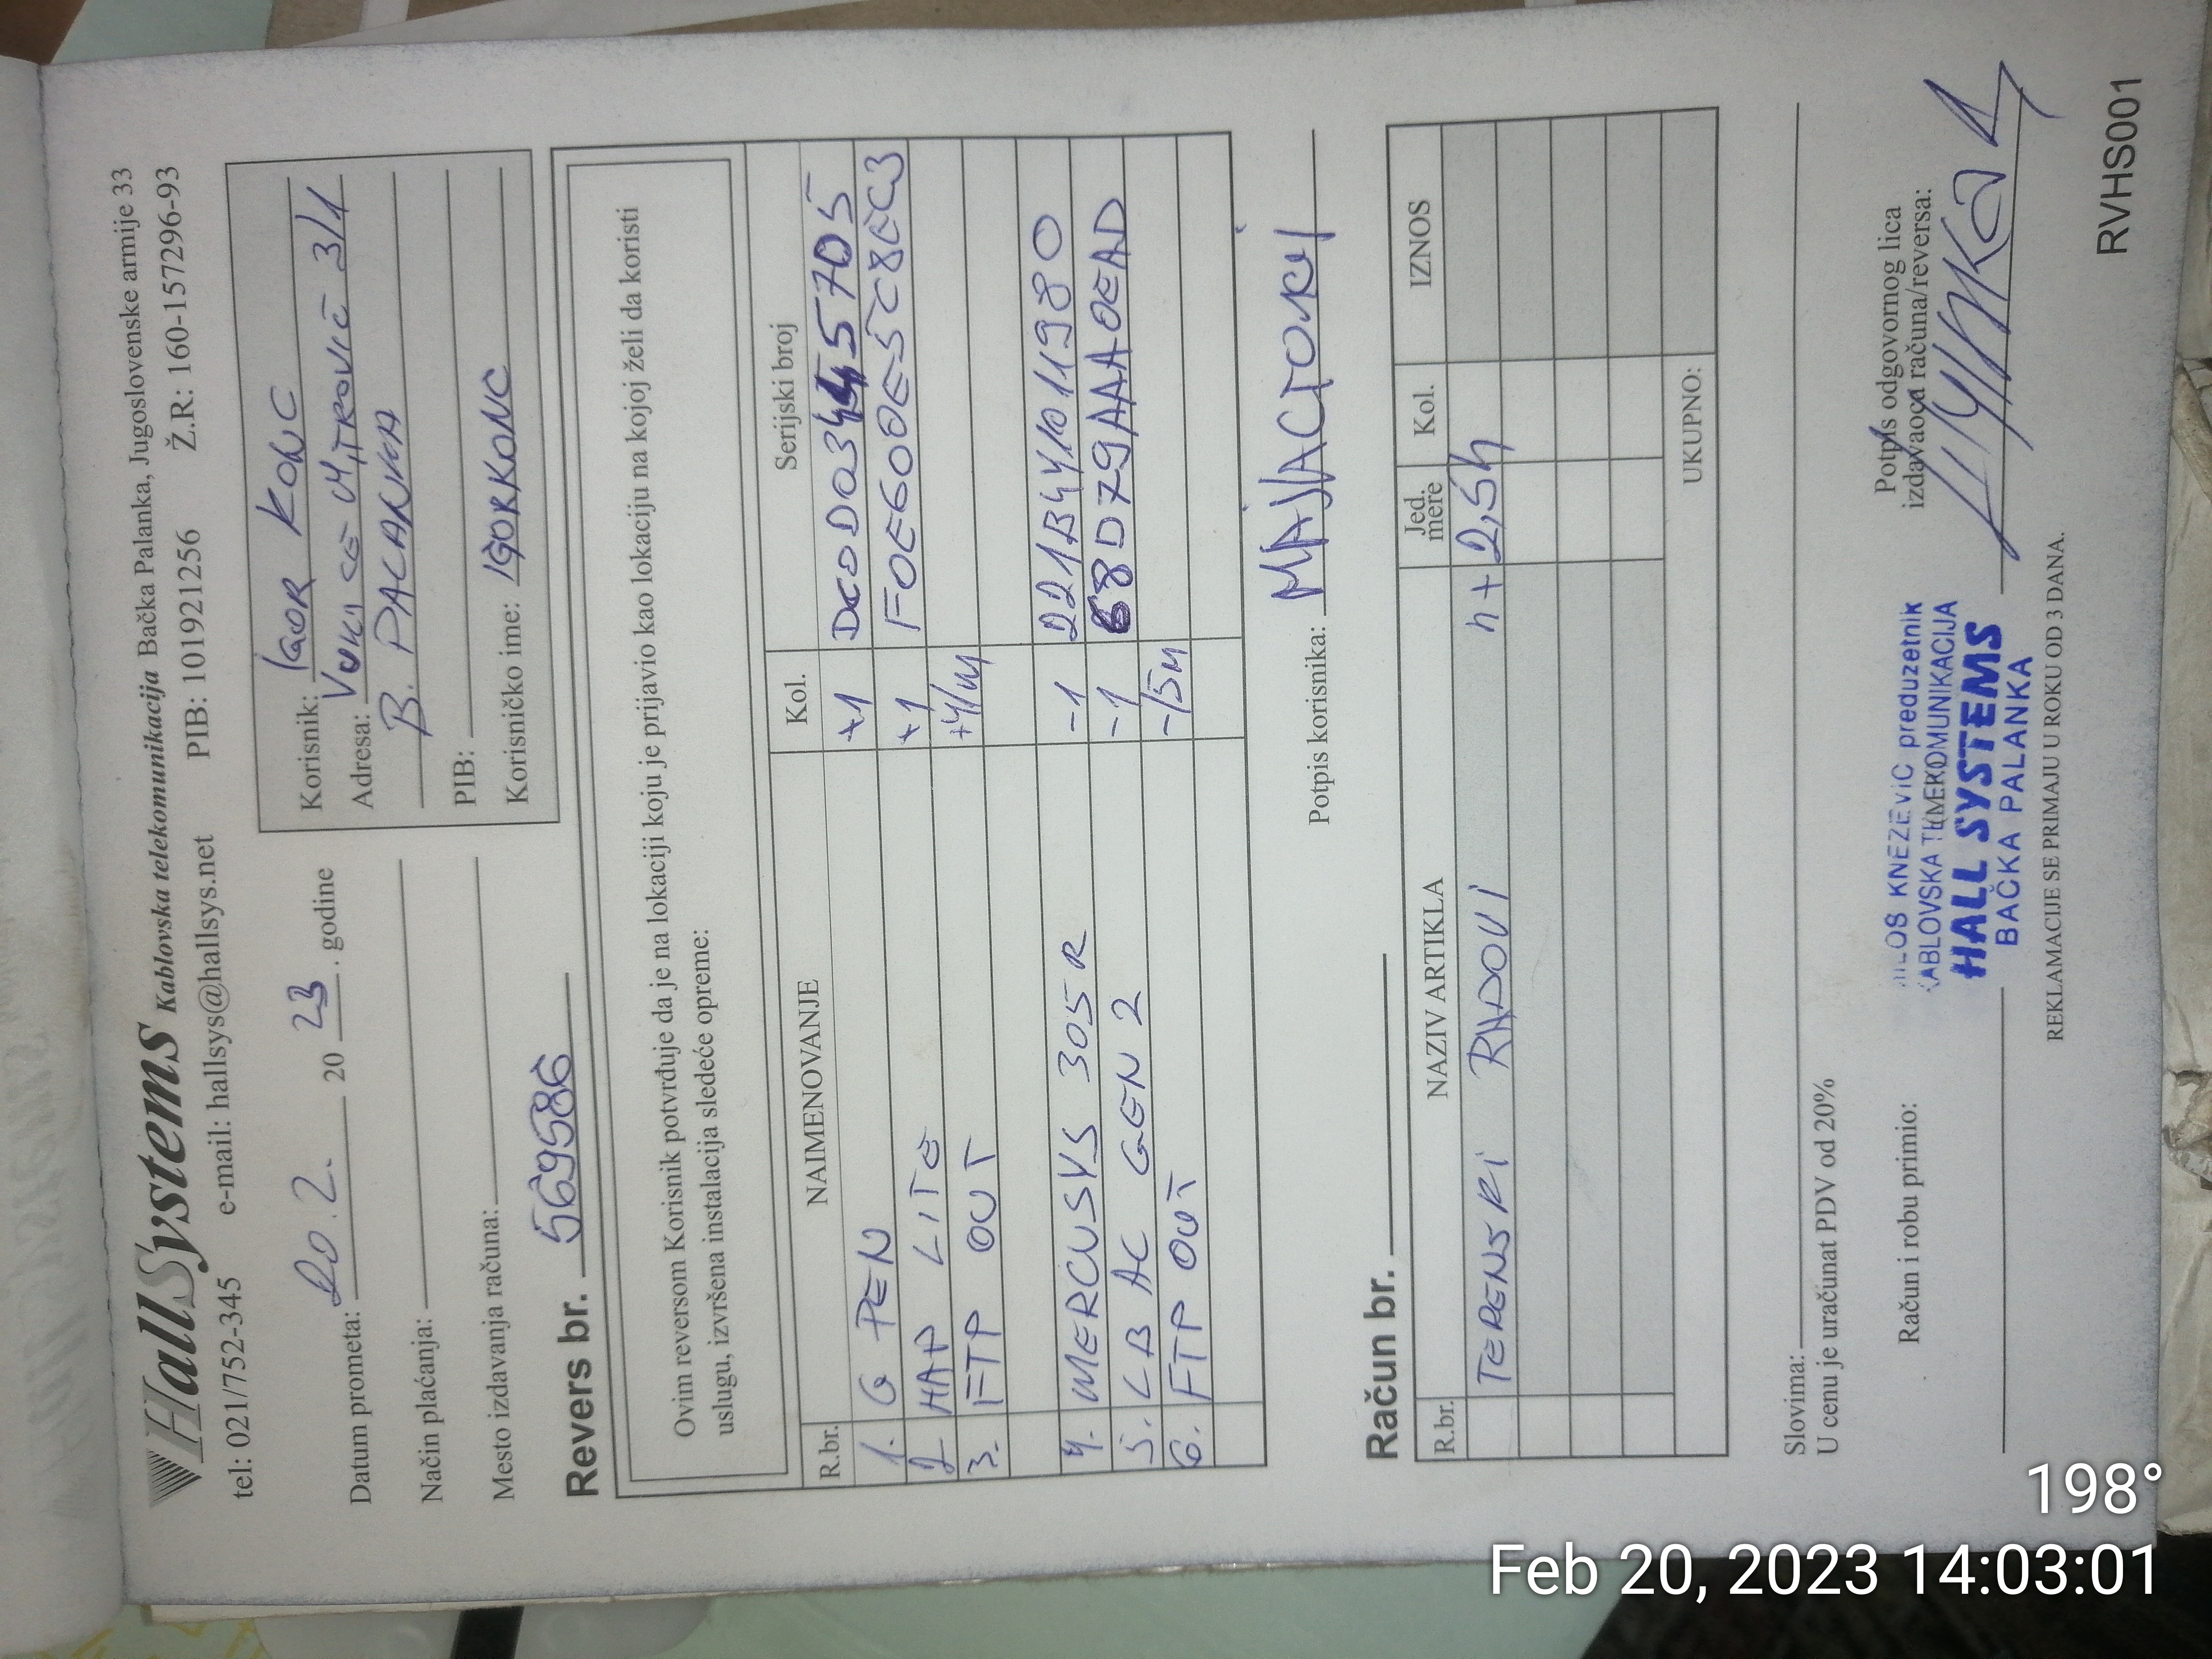 HallSystems Kablovska telekomunikacija Bačka Palanka, Jugoslovenske armije 33
tel: 021/752-345 e-mail: hallsys@hallsys.net PIB: 101921256 Ž.R: 160-157296-93
Datum prometa: 20.2. 20 23. godine
Način plaćanja:
Mesto izdavanja računa:
Korisnik: IGOR KONC
Adresa: VUKICE MITROVIĆ 3/1
B. PALANKA
PIB:
Korisničko ime: IGORKONC
Revers br. 569586
Ovim reversom Korisnik potvrđuje da je na lokaciji koju je prijavio kao lokaciju na kojoj želi da koristi
uslugu, izvršena instalacija sledeće opreme:
R.br. NAIMENOVANJE Kol. Serijski broj
1. G PEN +1
2 HAP LITE +1 FOE600E5C8EC3
3. FTP OUT
4. MERCUSYS 305R -1 221B4Y1011980
5. LB AC GEN 2 -1 68D79AAA0EAD
6. FTP OUT -15m
Potpis korisnika:
Račun br.
R.br. NAZIV ARTIKLA Jed. mere Kol. IZNOS
TERENSKI RADOVI h + 2,5h
UKUPNO:
Slovima:
U cenu je uračunat PDV od 20%
Račun i robu primio:
Potpis odgovornog lica
izdavaoca računa/reversa:
MILOS KNEZEVIC preduzetnik
KABLOVSKA TELEKOMUNIKACIJA
HALL SYSTEMS
BAČKA PALANKA
REKLAMACIJE SE PRIMAJU U ROKU OD 3 DANA.
RVHS001
198°
Feb 20, 2023 14:03:01